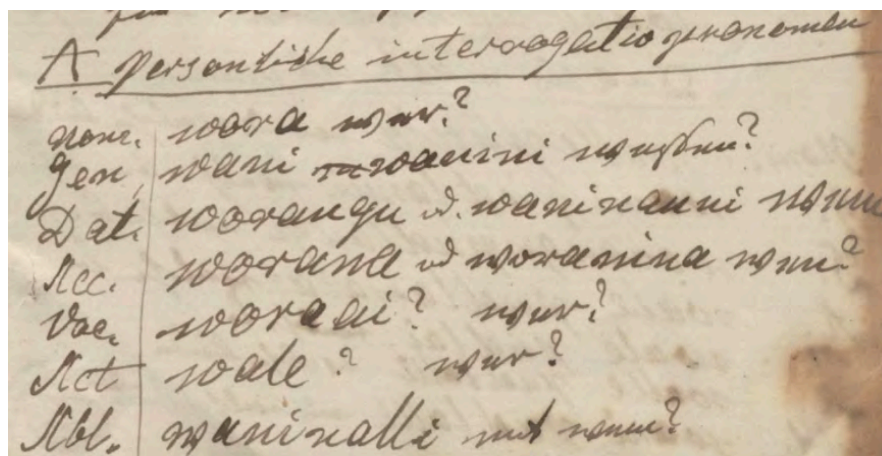 A. persönliche interrogativpronomen
Nom. wora wer?
Gen. wani wanini wessen?
Dat. worangu od. waninanni wem
Acc. worana od woranina wen?
Voc. worăai? wer?
Act wale? wer?
Abl. waninalli mit wem?